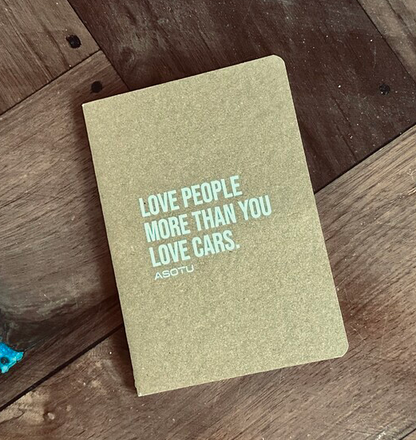 LOVE PEOPLE
MORE THAN YOU
LOVE CARS.
ASOTU